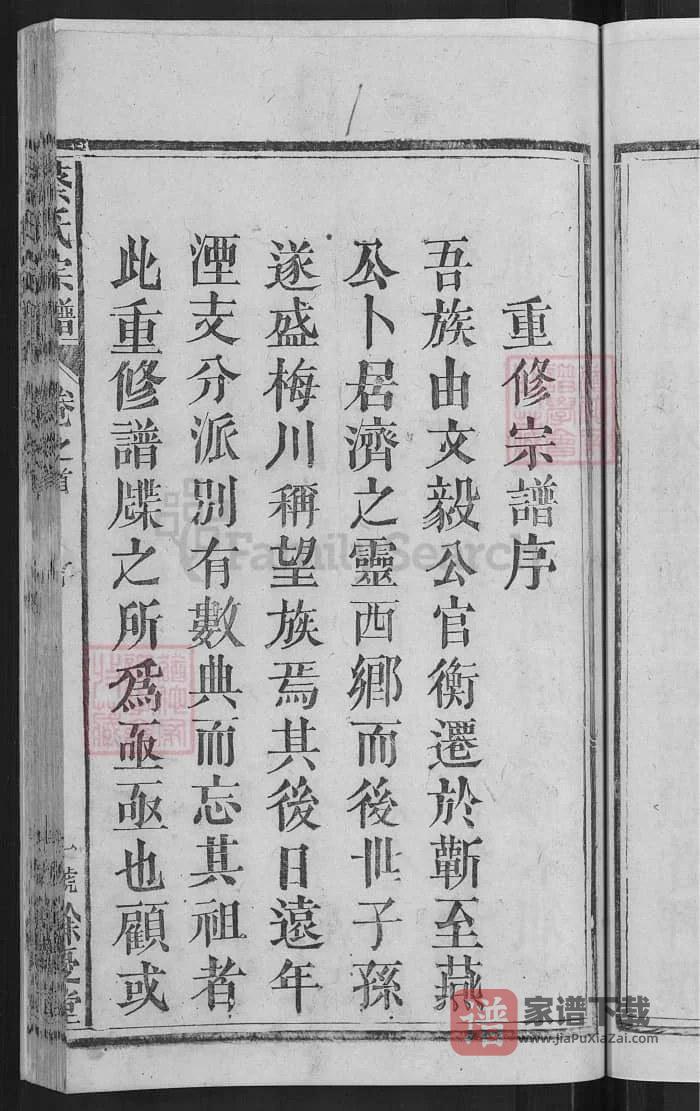 重修宗譜序
吾族由文毅公官衡遷於蘄至燕
公卜居濟之靈西鄉而後世子孫
遂盛梅川稱望族焉其後日遠年
湮支分派別有數典而忘其祖者
此重修譜牒之所為亟亟也顧或
蔡氏宗譜
卷之首
序
FamilySearch
譜
家谱下载
www.jiaPuXiaZai.com